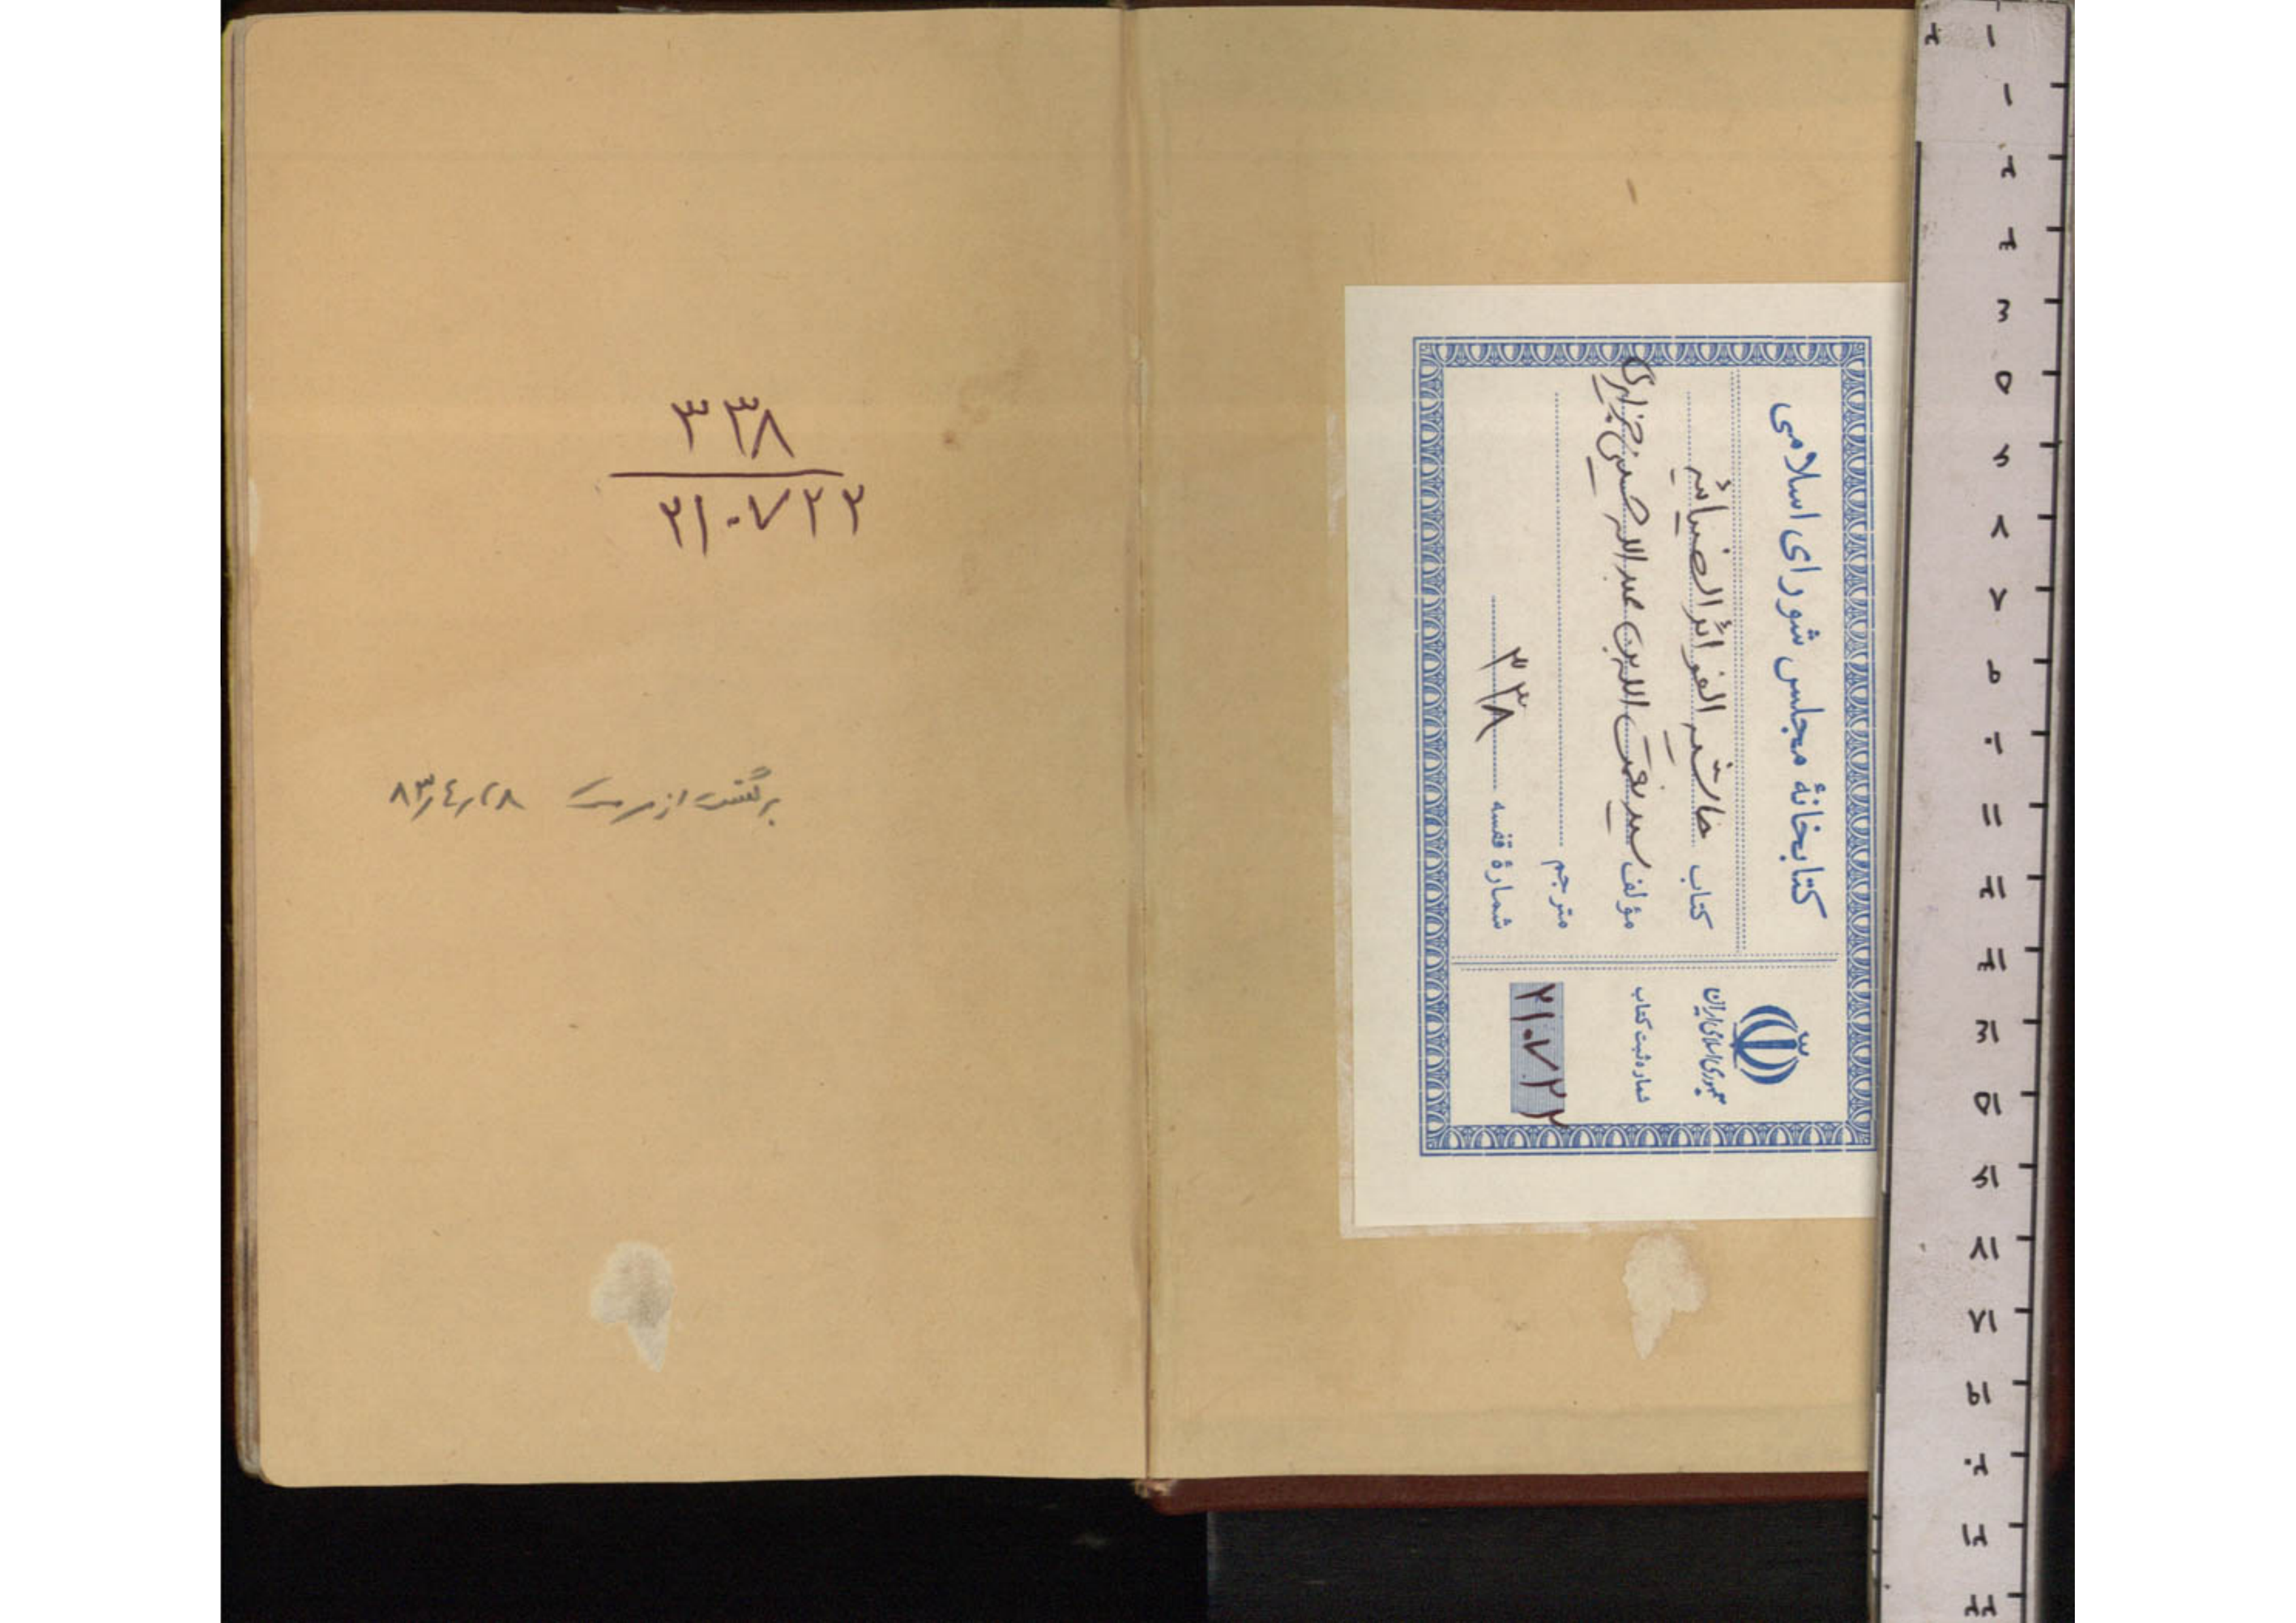 ۳۳۸
۲۱۰۷۲۲
برگشت از مرمت ۸۳٫۴٫۲۸
کتابخانهٔ مجلس شورای اسلامی
کتاب حاشیه الفوائد الضیائیه
مؤلف سید نعمت الله بن عبدالله حسینی جزایری
مترجم
شمارهٔ قفسه ۳۳۸
جمهوری اسلامی ایران
شماره ثبت کتاب
۲۱۰۷۲۲
۱ ۲
۱
۲
۳
۴
۵
۶
۷
۸
۹
۱۰
۱۱
۱۲
۱۳
۱۴
۱۵
۱۶
۱۷
۱۸
۱۹
۲۰
۲۱
۲۲